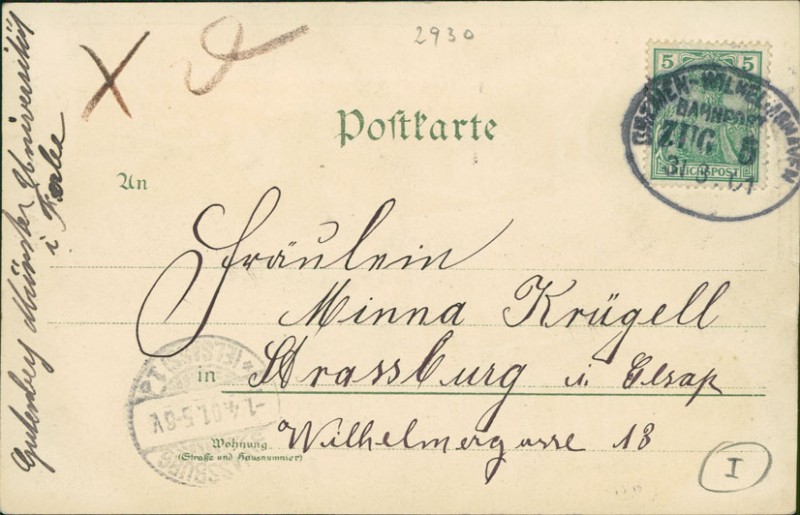 2930
5 5
REICHSPOST
BREMEN-WILHELMSHAVEN
BAHNPOST
ZUG 5
31 3 01
Postkarte
An
Fräulein
Minna Krügell
in Strassburg i. Elsaß
Wilhelmergasse 13
Wohnung
(Straße und Hausnummer)
STRASSBURG
(ELSASS) 1
-1.4.01.5-6V.
Gutenberg Münster Universität
i Farbe
I